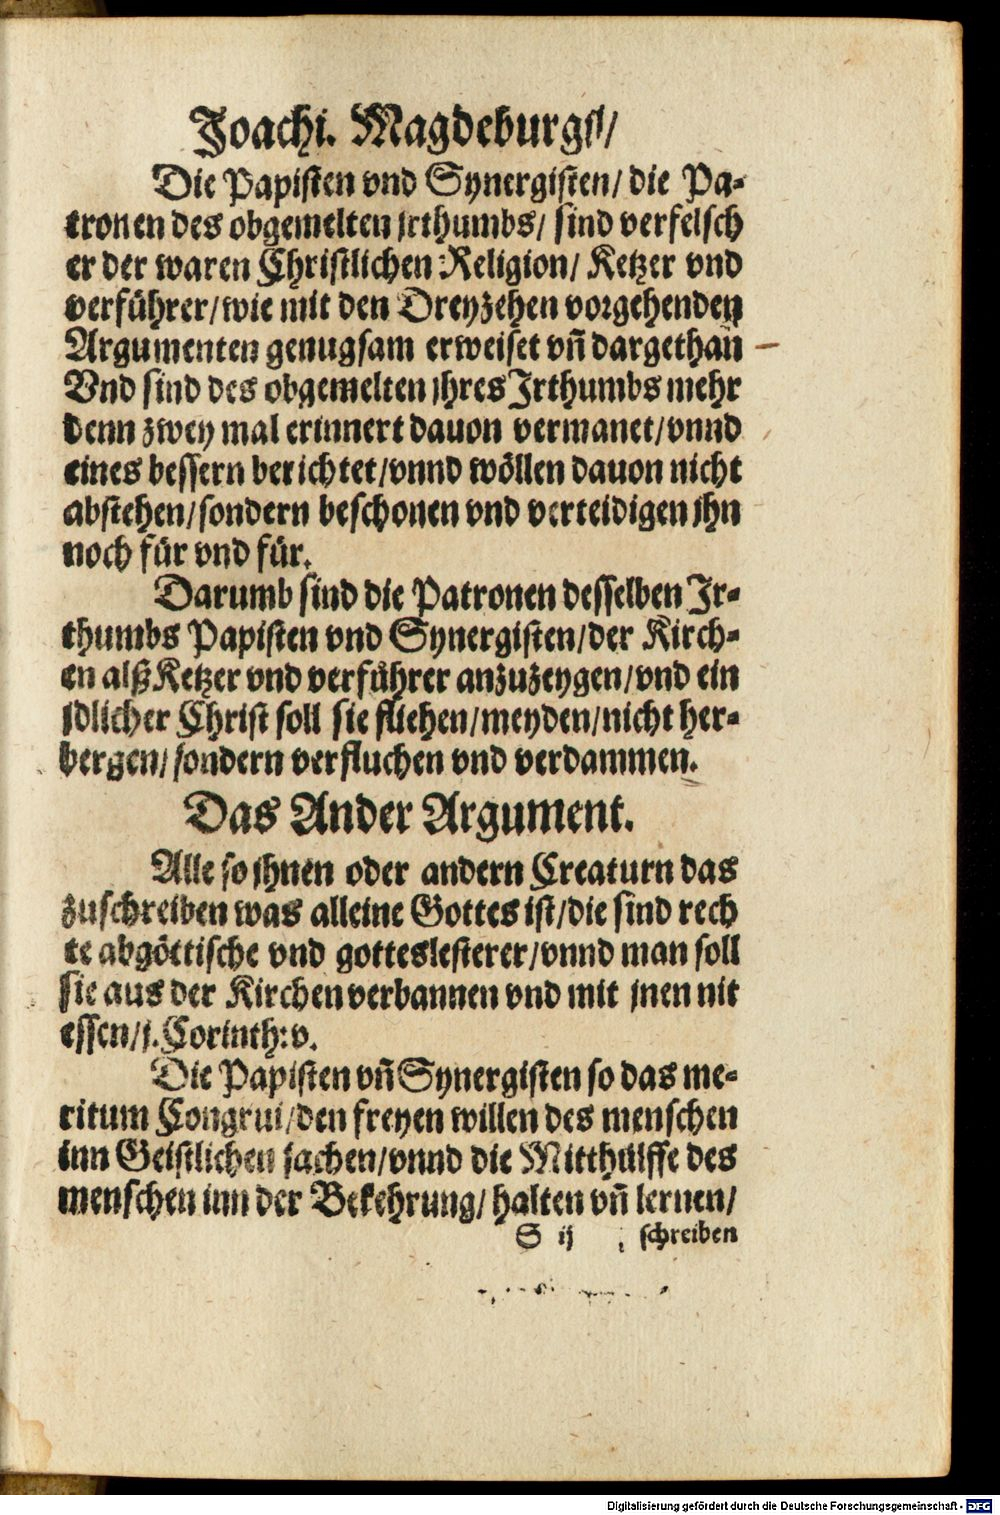 Joachi. Magdeburgs/
Die Papisten vnd Synergisten/ die Pa-
tronen des obgemelten jrthumbs/ sind verfelsch
er der waren Christlichen Religion/ Ketzer vnd
verführer/ wie mit den Dreyzehen vorgehenden
Argumenten genugsam erweiset vn̄ dargethan
Vnd sind des obgemelten jhres Jrthumbs mehr
denn zwey mal erinnert dauon vermanet/ vnnd
eines bessern berichtet/ vnnd wöllen dauon nicht
abstehen/ sondern beschonen vnd verteidigen jhn
noch für vnd für.
Darumb sind die Patronen desselben Jr-
thumbs Papisten vnd Synergisten/ der Kirch-
en alß Ketzer vnd verführer anzuzeygen/ vnd ein
jdlicher Christ soll sie fliehen/ meyden/ nicht her-
bergen/ sondern verfluchen vnd verdammen.
Das Ander Argument.
Alle so jhnen oder andern Creaturn das
zuschreiben was alleine Gottes ist/ die sind rech
te abgöttische vnd gotteslesterer/ vnnd man soll
sie aus der Kirchen verbannen vnd mit jnen nit
essen/ j. Corinth: v.
Die Papisten vn̄ Synergisten so das me-
ritum Congrui/ den freyen willen des menschen
inn Geistlichen sachen/ vnnd die Mitthülffe des
menschen inn der Bekehrung/ halten vn̄ lernen/
S ij schreiben
Digitalisierung gefördert durch die Deutsche Forschungsgemeinschaft - DFG